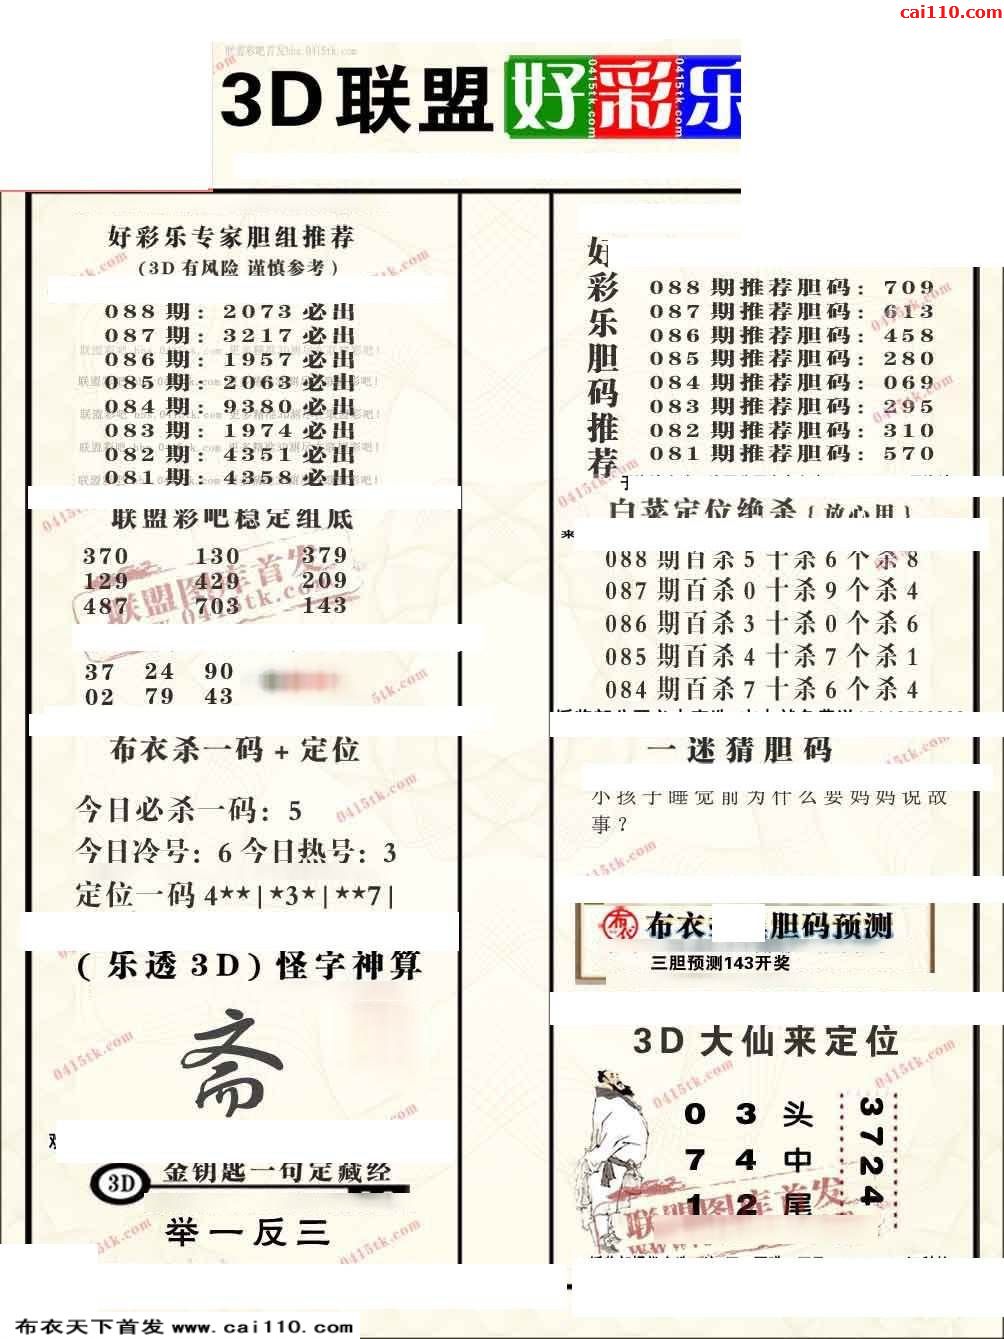 cai110.com
3D联盟好彩乐
好彩乐专家胆组推荐
(3D有风险 谨慎参考)
088期: 2073必出
087期: 3217必出
086期: 1957必出
085期: 2063必出
084期: 9380必出
083期: 1974必出
082期: 4351必出
081期: 4358必出
联盟彩吧稳定组底
370 130 379
129 429 209
487 703 143
37 24 90
02 79 43
布衣杀一码+定位
今日必杀一码: 5
今日冷号: 6 今日热号: 3
定位一码 4**|*3*|**7|
(乐透3D)怪字神算
斋
3D 金钥匙一句定藏经
举一反三
好彩乐胆码推荐
088期推荐胆码: 709
087期推荐胆码: 613
086期推荐胆码: 458
085期推荐胆码: 280
084期推荐胆码: 069
083期推荐胆码: 295
082期推荐胆码: 310
081期推荐胆码: 570
白菜定位绝杀{放心用}
088期百杀5十杀6个杀8
087期百杀0十杀9个杀4
086期百杀3十杀0个杀6
085期百杀4十杀7个杀1
084期百杀7十杀6个杀4
一迷猜胆码
小孩子睡觉前为什么要妈妈说故
事?
布衣 胆码预测
三胆预测143开奖
3D大仙来定位
0 3 头
7 4 中
1 2 尾
3724
联盟图库首发
布衣天下首发 www.cai110.com